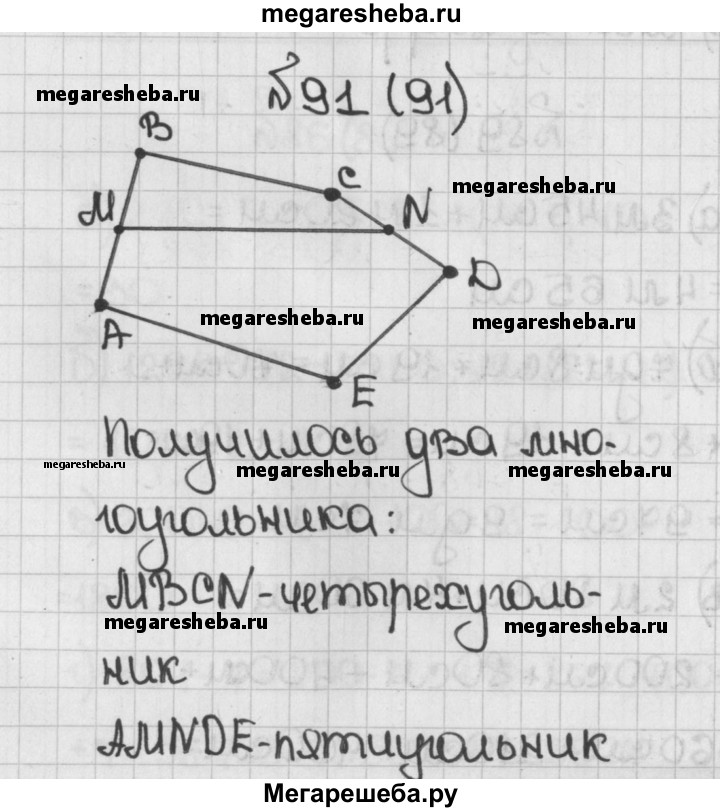 megaresheba.ru
№91 (91)
megaresheba.ru
B
C
megaresheba.ru
M
N
D
megaresheba.ru
megaresheba.ru
A
E
Получилось два мно-
megaresheba.ru
megaresheba.ru
megaresheba.ru
гоугольника:
MBCN-четырехуголь-
megaresheba.ru
megaresheba.ru
ник
AMNDE-пятиугольник
Мегарешеба.ру